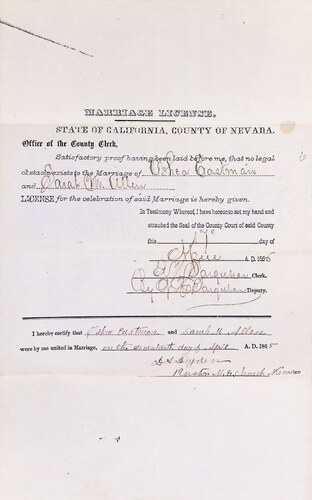 MARRIAGE LICENSE.
STATE OF CALIFORNIA, COUNTY OF NEVADA.
Office of the County Clerk,
Satisfactory proof having been laid before me, that no legal
obstacle exists to the Marriage of Eastman
and Sarah M. Allen
LICENSE for the celebration of said Marriage is hereby given.
In Testimony Whereof, I have hereunto set my hand and
attached the Seal of the County Court of said County
this 17 day of
A.D. 1865
Clerk.
By Deputy.
I hereby certify that Eastman and Sarah M Allen
were by me united in Marriage, on the seventeenth day of April A.D. 1865
Pastor M. E. Church